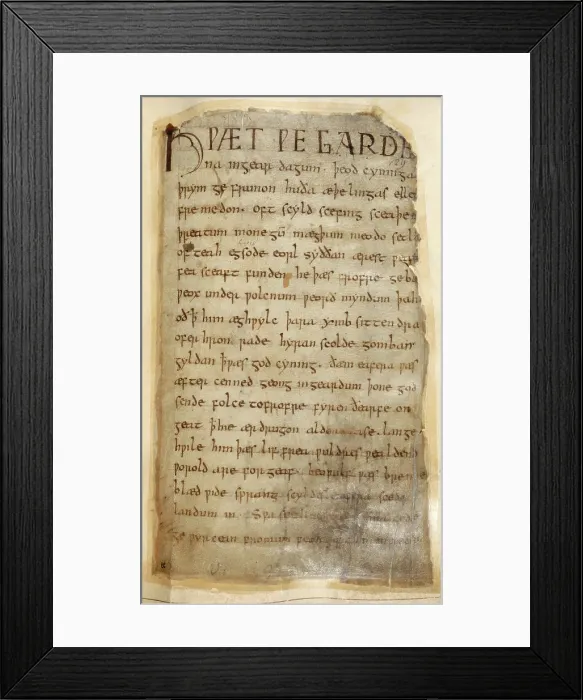 HǷÆT ǷE GARDE
na ingear dagum. þeod cyninga
þrym ge frunon huða æþelingas elle
fre medon. oft scyld scefing sceaþe
þreatum monegū mægþum meodo setl
of teah egsode eorl syððan ærest
fea sceaft funden he þæs frofre geba
ƿeox under ƿolcnum ƿeorð myndum þah
oð ꝥ him æghƿylc þara ymb sittendra
ofer hron rade hyran scolde gomban
gyldan ꝥ ƿæs god cyning. ðæm eafera ƿæs
æfter cenned geong ingeardum þone god
sende folce tofrofre fyren ðearfe on
geat ꝥ hie ær drugon aldor ase. lange
hƿile him þæs lif frea ƿuldres ƿealdend
ƿorold are for geaf. beoƿulf ƿæs breme
blæd ƿide sprang scyldes eafera scede
landum in. Sƿa sceal
ge ƿyrcean fromum